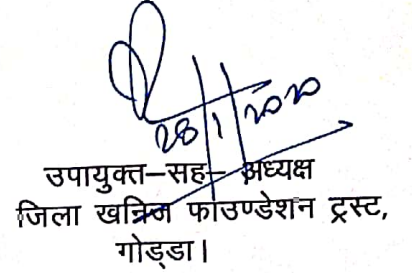 28/1/2020
उपायुक्त–सह– अध्यक्ष
जिला खनिज फाउण्डेशन ट्रस्ट,
गोड्डा।